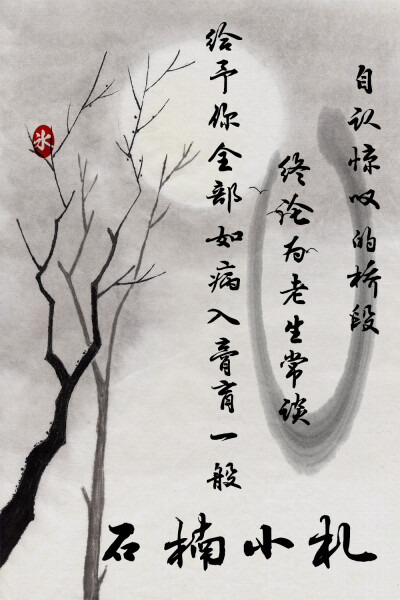 自认惊叹的桥段
终论为老生常谈
给予你全部如病入膏肓一般
氷
石楠小札